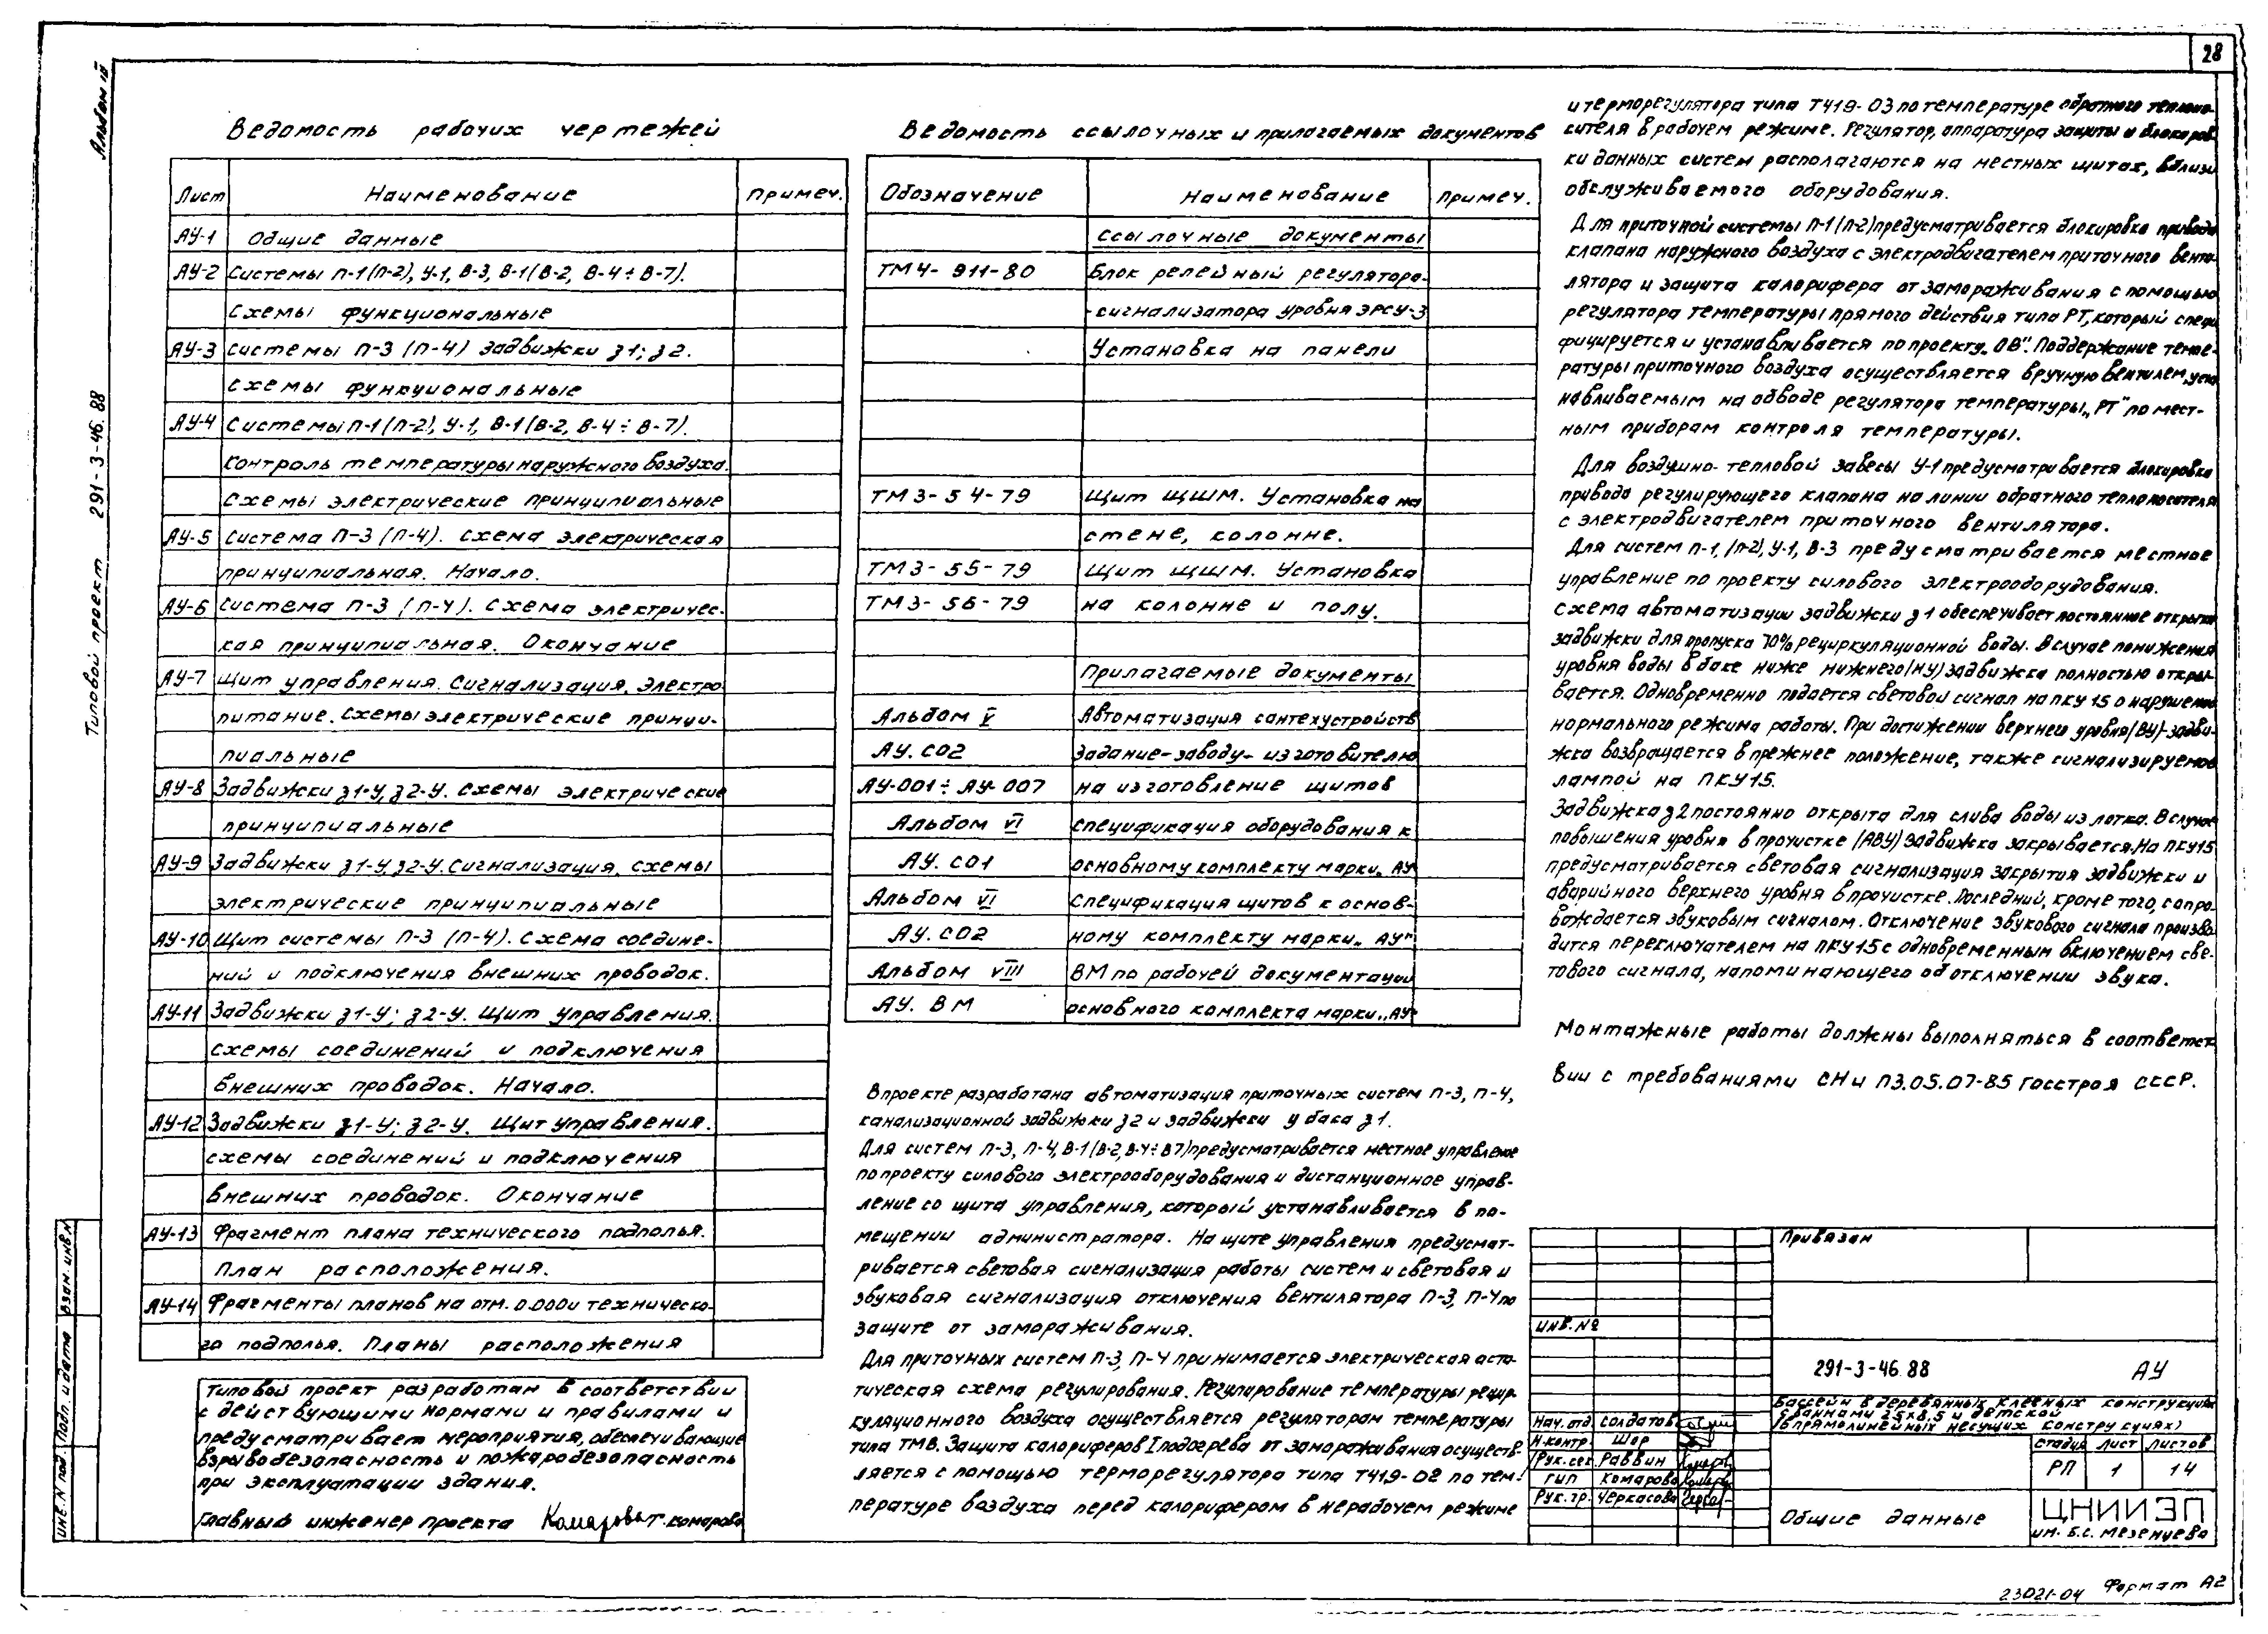 28
Альбом IV
Типовой проект 291-3-46.88
Ведомость рабочих чертежей
Лист Наименование Примеч.
АУ-1 Общие данные
АУ-2 Системы П-1(П-2), У-1, В-3, В-1(В-2, В-4÷В-7).
Схемы функциональные
АУ-3 Системы П-3 (П-4) Задвижки З1; З2.
Схемы функциональные
АУ-4 Системы П-1(П-2), У-1, В-1(В-2, В-4÷В-7).
Контроль температуры наружного воздуха.
Схемы электрические принципиальные
АУ-5 Система П-3 (П-4). Схема электрическая
принципиальная. Начало.
АУ-6 Система П-3 (П-4). Схема электричес-
кая принципиальная. Окончание
АУ-7 Щит управления. Сигнализация. Электро
питание. Схемы электрические принци-
пиальные
АУ-8 Задвижки З1-У, З2-У. Схемы электрические
принципиальные
АУ-9 Задвижки З1-У, З2-У. Сигнализация. Схемы
электрические принципиальные
АУ-10 Щит системы П-3 (П-4). Схема соедине-
ний и подключения внешних проводок.
АУ-11 Задвижки З1-У; З2-У. Щит управления.
Схемы соединений и подключения
внешних проводок. Начало.
АУ-12 Задвижки З1-У; З2-У. Щит управления.
Схемы соединений и подключения
внешних проводок. Окончание
АУ-13 Фрагмент плана технического подполья.
План расположения.
АУ-14 Фрагменты планов на отм. 0.000 и техническо-
го подполья. Планы расположения
Типовой проект разработан в соответствии
с действующими нормами и правилами и
предусматривает мероприятия, обеспечивающие
взрывобезопасность и пожаробезопасность
при эксплуатации здания.
Главный инженер проекта Комарова Г. Комарова
Ведомость ссылочных и прилагаемых документов
Обозначение Наименование Примеч.
Ссылочные документы
ТМ4-911-80 Блок релейный регулятора-
-сигнализатора уровня ЭРСУ-3
Установка на панели
ТМ3-54-79 Щит ЩШМ. Установка на
стене, колонне.
ТМ3-55-79 Щит ЩШМ. Установка
ТМ3-56-79 на колонне и полу.
Прилагаемые документы
Альбом V Автоматизация сантехустройств
АУ.СО2 Задание-заводу-изготовителю
АУ-001÷АУ-007 на изготовление щитов
Альбом VI Спецификация оборудования к
АУ.СО1 основному комплекту марки „АУ"
Альбом VI Спецификация щитов к основ-
АУ.СО2 ному комплекту марки „АУ"
Альбом VIII ВМ по рабочей документации
АУ. ВМ основного комплекта марки „АУ"
В проекте разработана автоматизация приточных систем П-3, П-4,
канализационной задвижки З2 и задвижки у бака З1.
Для систем П-3, П-4, В-1(В-2, В-4÷В7) предусматривается местное управление
по проекту силового электрооборудования и дистанционное управ-
ление со щита управления, который устанавливается в по-
мещении администратора. На щите управления предусмат-
ривается световая сигнализация работы систем и световая и
звуковая сигнализация отключения вентилятора П-3, П-4 по
защите от замораживания.
Для приточных систем П-3, П-4 принимается электрическая аста-
тическая схема регулирования. Регулирование температуры рецир-
куляционного воздуха осуществляется регулятором температуры
типа ТМ8. Защита калориферов I подогрева от замораживания осуществ-
ляется с помощью терморегулятора типа Т419-02 по тем-
пературе воздуха перед калорифером в нерабочем режиме
и терморегулятора типа Т419-03 по температуре обратного теплоно-
сителя в рабочем режиме. Регулятор, аппаратура защиты и блокиров-
ки данных систем располагаются на местных щитах, вблизи
обслуживаемого оборудования.
Для приточной системы П-1(П-2) предусматривается блокировка привода
клапана наружного воздуха с электродвигателем приточного венти-
лятора и защита калорифера от замораживания с помощью
регулятора температуры прямого действия типа РТ, который специ-
фицируется и устанавливается по проекту „ОВ". Поддержание темпе-
ратуры приточного воздуха осуществляется вручную вентилем, уста-
навливаемым на обводе регулятора температуры „РТ" по мест-
ным приборам контроля температуры.
Для воздушно-тепловой завесы У-1 предусматривается блокировка
привода регулирующего клапана на линии обратного теплоносителя
с электродвигателем приточного вентилятора.
Для систем П-1, (П-2), У-1, В-3 предусматривается местное
управление по проекту силового электрооборудования.
Схема автоматизации задвижки З1 обеспечивает постоянное открытие
задвижки для пропуска 70% рециркуляционной воды. В случае понижения
уровня воды в баке ниже нижнего (НУ) задвижка полностью откры-
вается. Одновременно подается световой сигнал на ПКУ15 о нарушении
нормального режима работы. При достижении верхнего уровня (ВУ)-задви-
жка возвращается в прежнее положение, также сигнализируемое
лампой на ПКУ15.
Задвижка З2 постоянно открыта для слива воды из лотка. В случае
повышения уровня в прочистке (АВУ) задвижка закрывается. На ПКУ15
предусматривается световая сигнализация закрытия задвижки и
аварийного верхнего уровня в прочистке. Последний, кроме того, сопро-
вождается звуковым сигналом. Отключение звукового сигнала произво-
дится переключателем на ПКУ15 с одновременным включением све-
тового сигнала, напоминающего об отключении звука.
Монтажные работы должны выполняться в соответст-
вии с требованиями СНиП3.05.07-85 Госстроя СССР.
Привязан
Инв. №
291-3-46.88 АУ
Бассейн в деревянных клееных конструкциях
с ваннами 25х8.5 и детской
(в прямолинейных несущих конструкциях)
Нач. отд. Солдатов
Н. контр. Шор
Рук. сек. Раввин
ГИП Комарова
Рук. гр. Черкасова
Стадия Лист Листов
РП 1 14
Общие данные
ЦНИИЭП
им. Б.С. Мезенцева
Взам. инв. N
Подп. и дата
Инв. N под.
23021-04 Формат А2